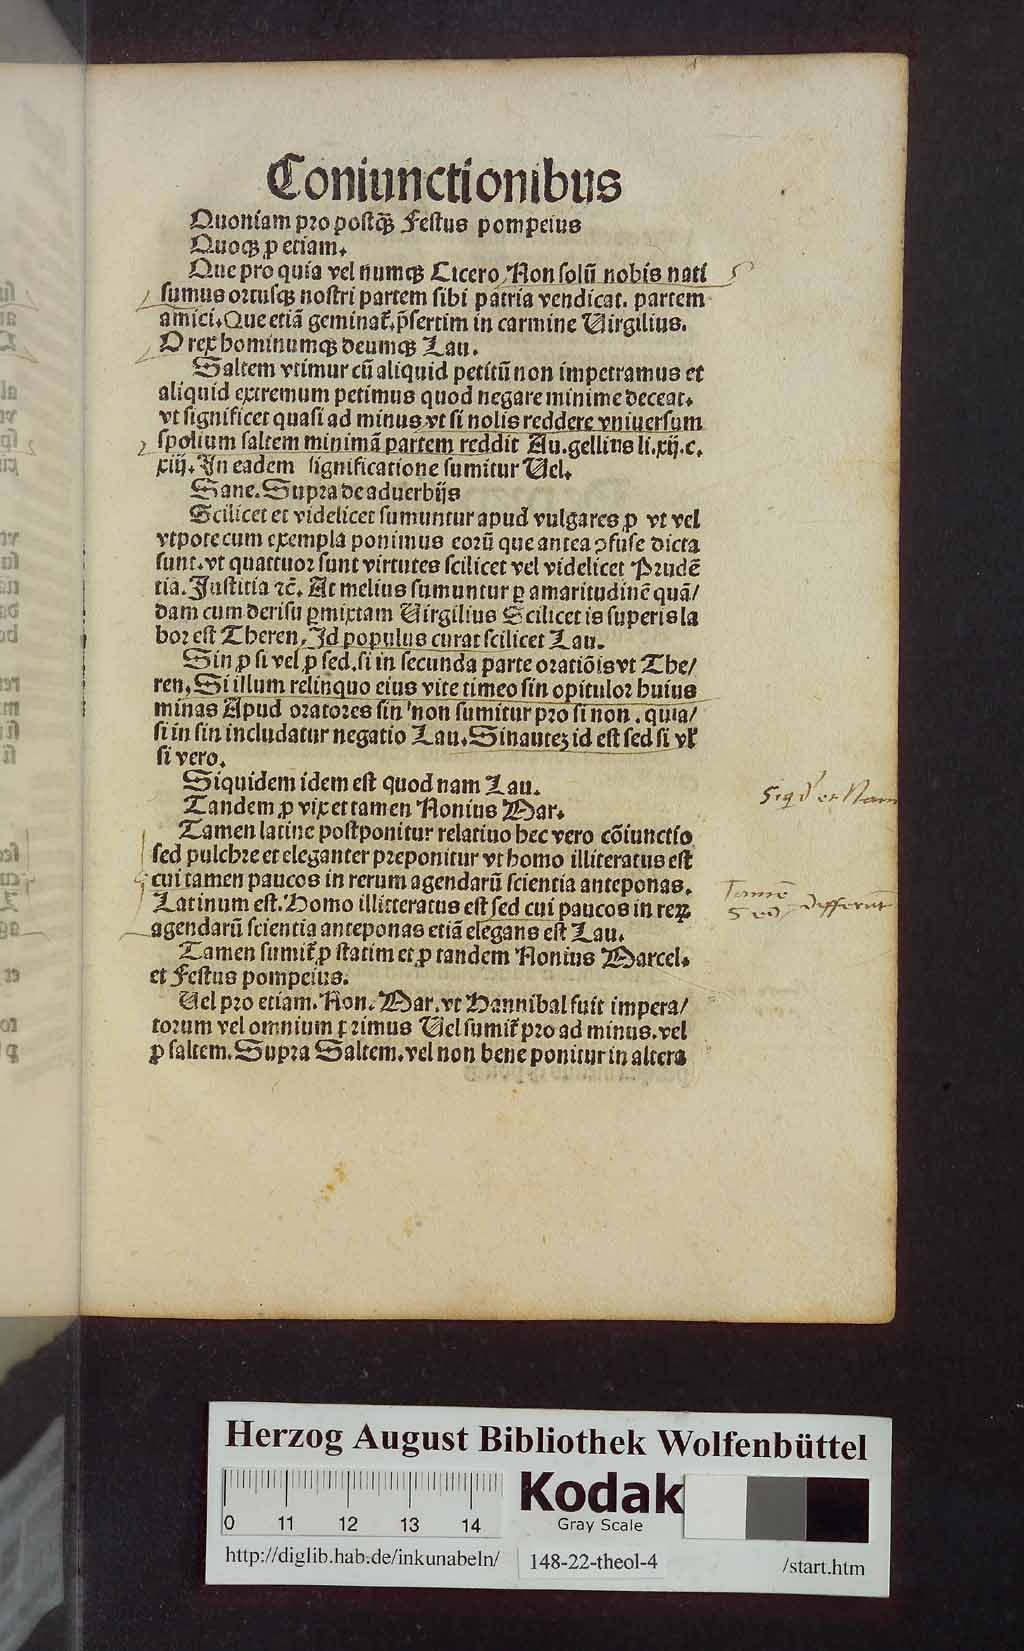 Coniunctionibus
Quoniam pro postq̃ȝ Festus pompeius
Quoqȝ ꝓ etiam.
Que pro quia vel numqȝ Cicero, Non solū nobis nati
sumus ortusqȝ nostri partem sibi patria vendicat. partem
amici. Que etiã geminat̃. p̃sertim in carmine Virgilius.
O rex hominumqȝ deumqȝ Lau.
Saltem vtimur cū aliquid petitū non impetramus et
aliquid extremum petimus quod negare minime deceat.
vt significet quasi ad minus vt si nolis reddere vniuersum
spolium saltem minimã partem reddit Au. gellius li. xij. c.
xiij. In eadem significatione sumitur Uel.
Sane. Supra de aduerbijs
Scilicet et videlicet sumuntur apud vulgares ꝓ vt vel
vtpote cum exempla ponimus eorū que antea ꝯfuse dicta
sunt. vt quattuor sunt virtutes scilicet vel videlicet Prudē
tia. Justitia ⁊c̃. At melius sumuntur ꝑ amaritudinē quã/
dam cum derisu ꝑmixtam Virgilius Scilicet is superis la
bor est Theren, Id populus curat scilicet Lau.
Sin ꝓ si vel ꝓ sed. si in secunda parte oratiōis vt The/
ren, Si illum relinquo eius vite timeo sin opitulor huius
minas Apud oratores sin non sumitur pro si non. quia/
si in sin includatur negatio Lau. Sinauteȝ id est sed si vl̕
si vero.
Siquidem idem est quod nam Lau.
Tandem ꝓ vix et tamen Nonius Mar.
Tamen latine postponitur relatiuo hec vero cōiunctio
sed pulchre et eleganter preponitur vt homo illiteratus est
cui tamen paucos in rerum agendarū scientia anteponas.
Latinum est. Homo illitteratus est sed cui paucos in reꝝ
agendarū scientia anteponas etiã elegans est Lau.
Tamen sumit̃ ꝓ statim et ꝓ tandem Nonius Marcel.
et Festus pompeius.
Uel pro etiam. Non. Mar. vt Hannibal fuit impera/
torum vel omnium primus Uel sumit̃ pro ad minus. vel
ꝓ saltem. Supra Saltem. vel non bene ponitur in altera
et Nam
Tamē
Sed differūt
Herzog August Bibliothek Wolfenbüttel
0 11 12 13 14
Kodak
Gray Scale
http://diglib.hab.de/inkunabeln/ 148-22-theol-4 /start.htm